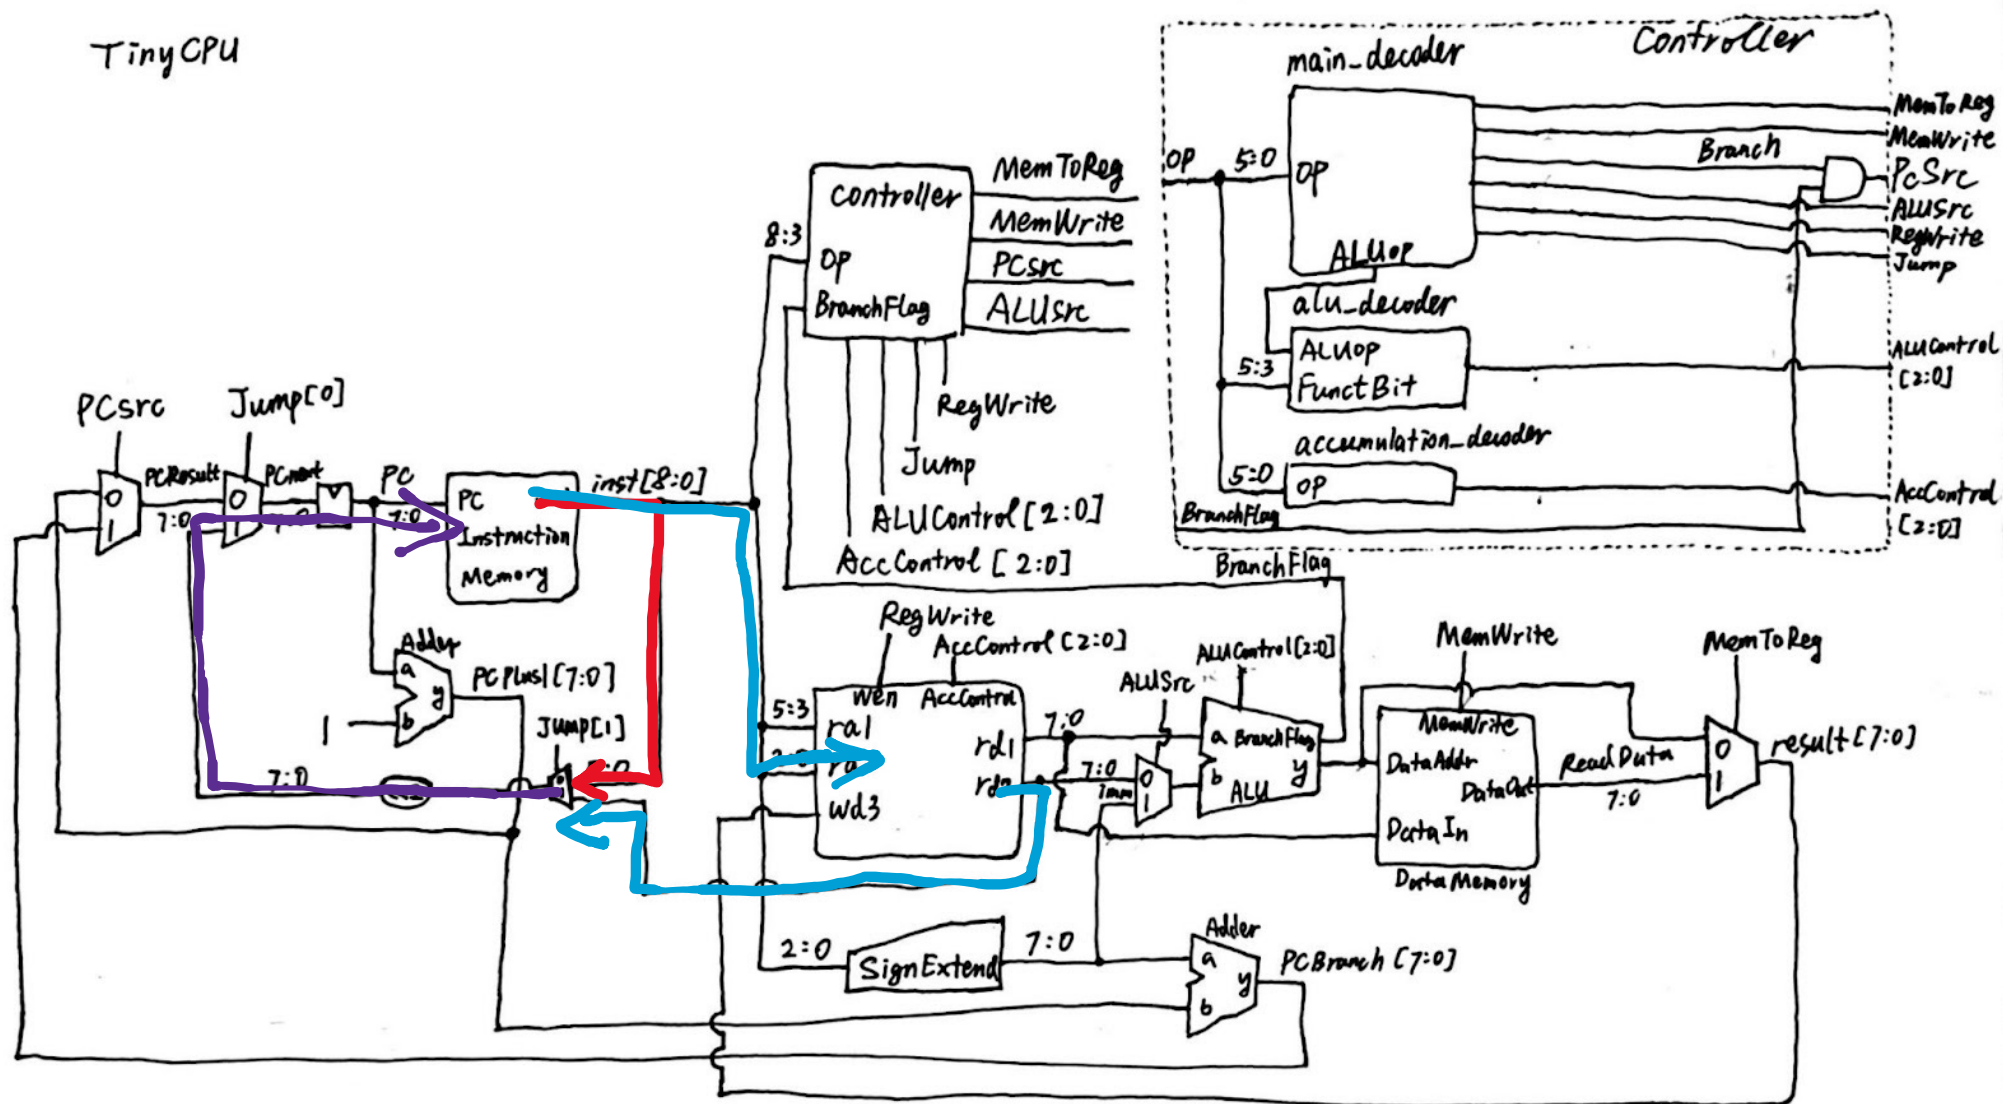 TinyCPU
Controller
main_decoder
OP
5:0
OP
ALUOP
MemToReg
MemWrite
Branch
PcSrc
ALUSrc
RegWrite
Jump
alu_decoder
ALUOP
5:3
FunctBit
ALUControl
[2:0]
accumulation_decoder
5:0
OP
AccControl
[2:0]
BranchFlag
Controller
8:3
OP
BranchFlag
MemToReg
MemWrite
PCsrc
ALUsrc
RegWrite
Jump
ALUControl[2:0]
AccControl[2:0]
PCsrc
Jump[0]
0
1
PCResult
7:0
0
PCnext
PC
7:0
PC
Instruction
Memory
inst[8:0]
Adder
a
b
y
1
PCPlus1[7:0]
Jump[1]
7:0
BranchFlag
RegWrite
AccControl[2:0]
wen
AccControl
5:3
ra1
wd3
rd1
7:0
7:0
imm
ALUSrc
0
1
ALUControl[2:0]
a
BranchFlag
b
y
ALU
MemWrite
MemWrite
DataAddr
DataOut
DataIn
DataMemory
ReadData
7:0
MemToReg
0
1
result[7:0]
2:0
SignExtend
7:0
Adder
a
b
y
PCBranch[7:0]